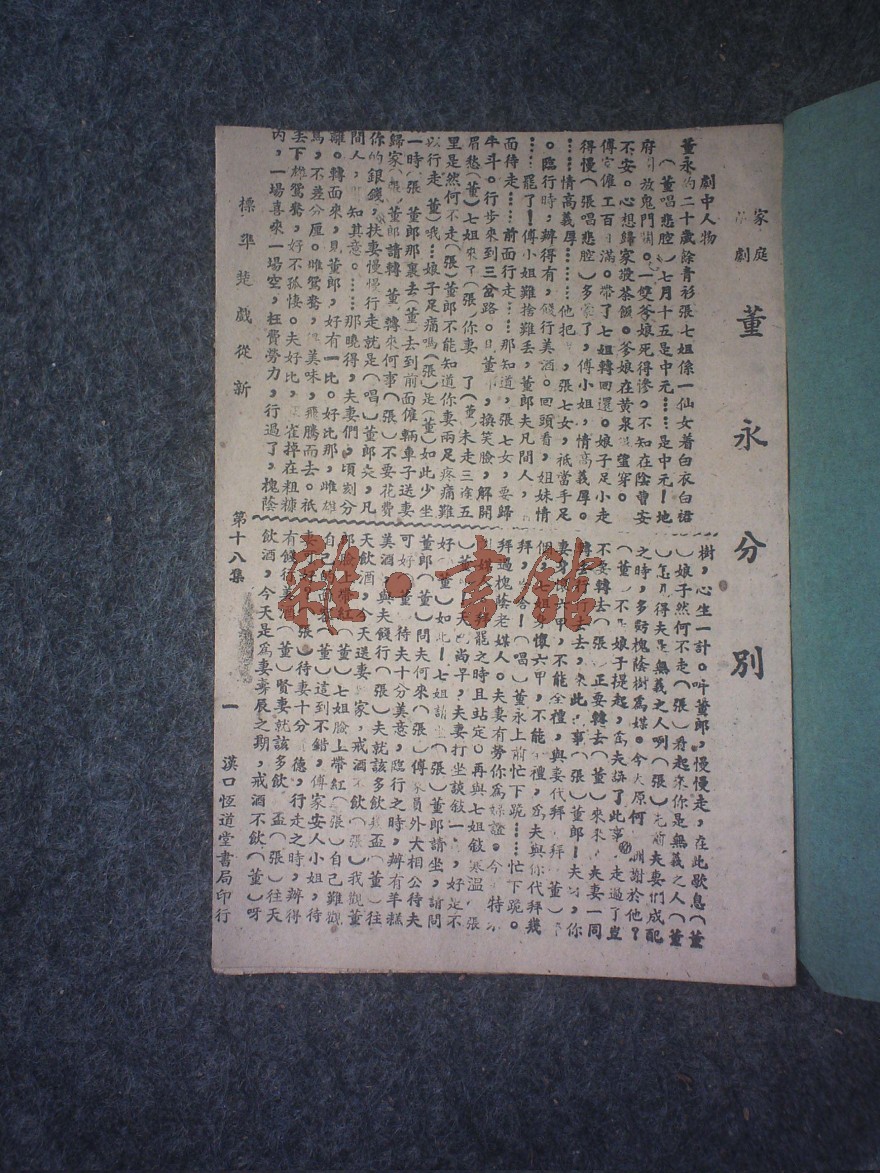 家庭
劇
董永分別
劇中人物
董永約二十歲餘青衫張七姐係一仙女着白衣白裙
（董唱悲腔）七月十五是中元……是中元！地
府放鬼門關。一雙爹娘死得慘。不知在陰曹安
不安。心想歸家投茶飯。爹娘在黃泉望穿。
傅家僱工百日滿。帶了七姐轉回還。娘子足小走
得慢（張唱悲腔）多蒙了，傅小姐，情高義厚。
……情高義厚………他把，張七女，祇當手足
。臨行時，辦得有，餞行美酒。回頭看，姐妹情
……罷了！傅小姐難捨難丟，董郎夫凡間人，
而待走……前面行走……那知道，張七女，要歸
牛斗。行步來到三岔路。見董郎，換笑臉，解開
眉愁（董）七姐來了（張）你妻了（董）未走三途五
里是然何不走（張）董郎不能知道你妻兩足疼痛難
以行走（董）哦…娘子足痛嗎（張）是（董）如此少坐
一時（張）董郎那裏去（董）去到前面僱輛車子送妻
歸家（張）董郎請轉（董）轉來何事（張）不要花費
你的銀錢，扶妻慢慢行走就是（唱）董郎夫，凡
間人，知其意。……那曉得，夫妻們，頃刻分
離。轉面來，見董郎，好有一比。好比那，雌雄
鳥，不差分厘。雌鴛鴦，美味，飛騰而去。祇
丟下雄鴛鴦，好不孤悽。夫好比，雀掉在粗糠
內，一場喜來一場空，枉費勞力，行過了，槐陰
樹，心生一計。吓董郎，慢慢走，在此歇息（董
）娘子然何不走（張）看起來你是無義之人（董
）怎見得夫是無義之人啊（張）先前夫妻們成配
之時，多虧槐陰樹爲媒。今大原何謝於他？
（董）不是娘子提起，爲夫誤了此事走過了豈
不要轉去（張）正要轉去（董）來來夫妻一同
轉去行去去，來此事（張）董郎！夫呀，你
妻身懷六甲，不能全禮，與妻代拜拜（董）
個，七姐身懷六甲，不能禮，爲夫與你代拜幾
拜，（唱）董永上前忙下跪……忙下跪。
拜過槐蔭老媒人。夫妻有勞你爲媒證。今特
媒人拜罷之時且站定。再與七姐敍寒溫（張
）董天色尚早，夫妻打坐談敍一，好是不
好（董）如此！七姐請（張）董郎請坐，請問
董郎（董）問夫何來（張）傅家員外大相公待夫
可好（董）待夫十分美意，臨行之時，辦有羊糕
美酒，與夫餞行（張）夫就該多飲幾盃（董）往
天飲酒，今天送妻家，戒酒不飲（張）我觀董
郎臉上帶紅（董）七姐臉上帶紅（張）自己難觀
自己的（董）這到不錯，傅家安人小姐，待
妻可好（張）待妻十分德，行走之時，辦得
有餞行美酒（董）賢妻就該多飲盃（張）往天
飲酒，今天是爲妻壽辰之期，戒酒不飲（董）呀
標準楚戲從新
第十八集
一
漢口恆道堂書局印行
雜·書館